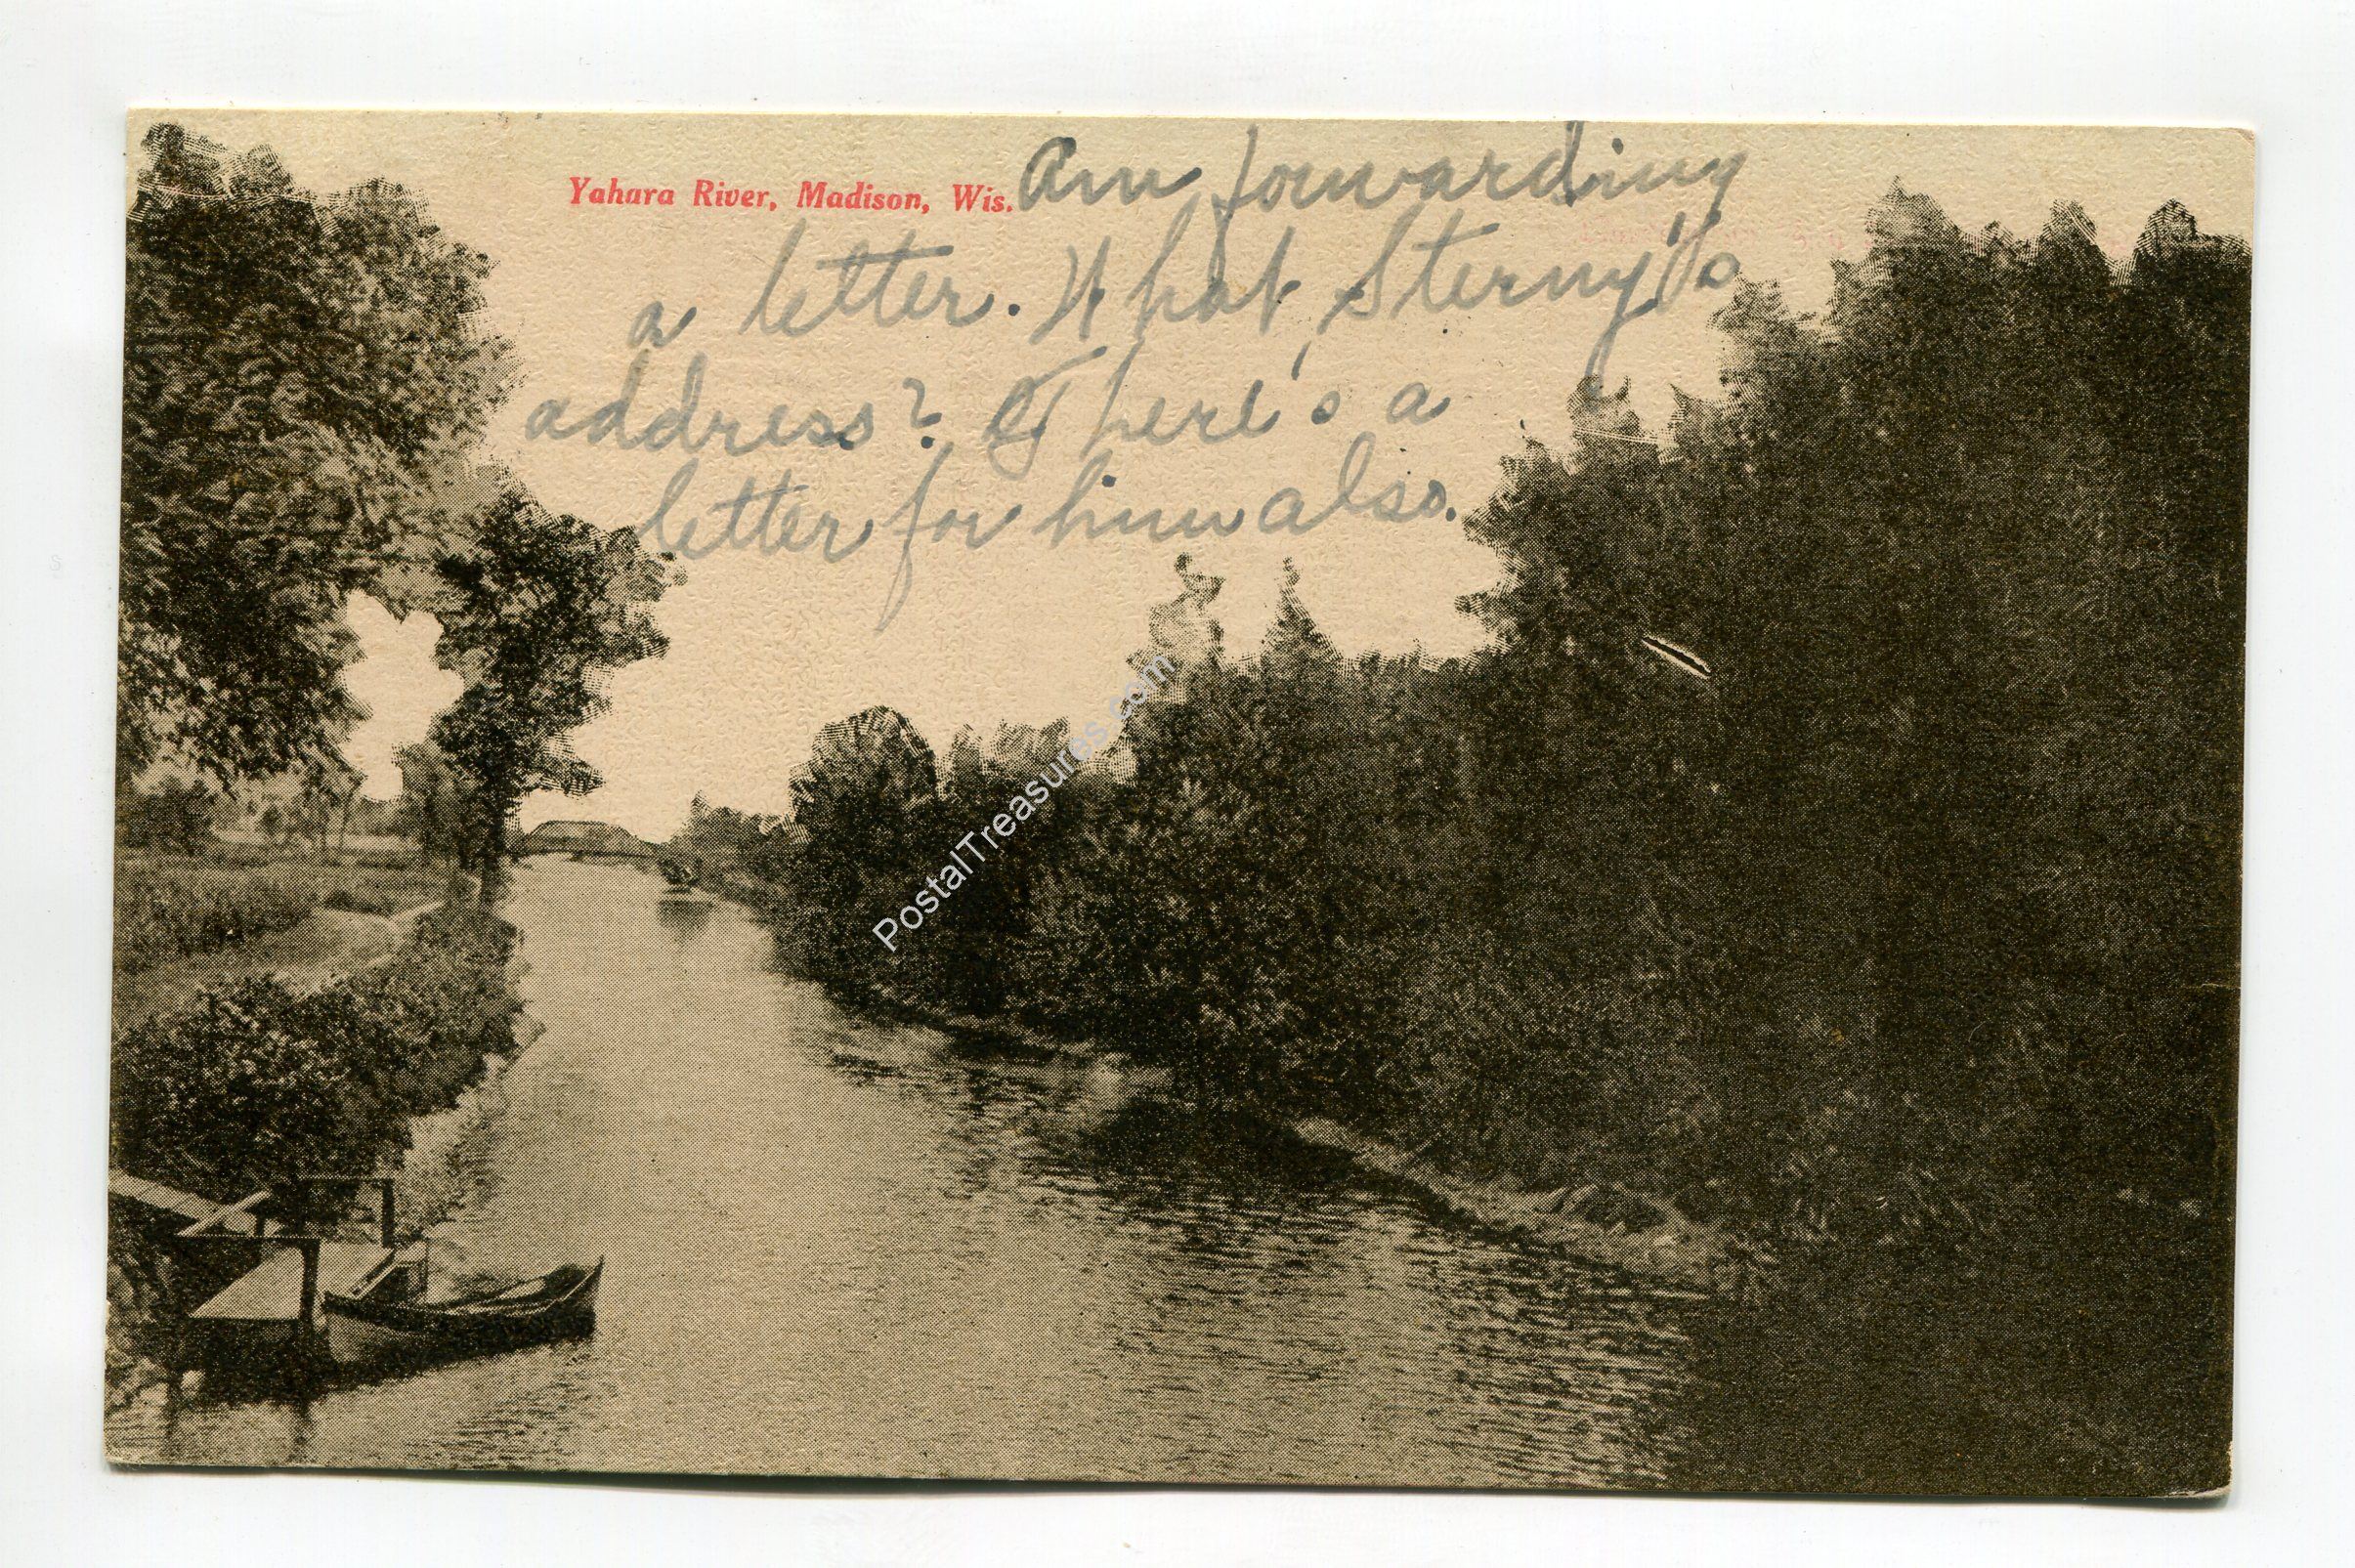 Yahara River, Madison, Wis. Am forwarding
a letter. What Sterny's
address? There's a
letter for him also.
PostalTreasures.com